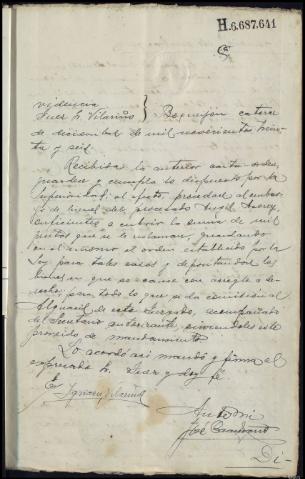 H.6.687.641
Providencia
Juez Sr. Vilariño } Boqueijón catorce
de diciembre de mil novecientos trein-
ta y seis
Recibida la anterior carta-orden,
guárdese y cumpla lo dispuesto por la
Superioridad; al efecto, procédase al embar-
go de bienes del procesado
suficientes a cubrir la suma de mil
pesetas que se le reclaman, guardando
en el mismo el orden establecido por la
Ley para tales casos y depositándose los
bienes en que se cause con arreglo a de-
recho; para todo lo que se da comisión al
Alguacil de este Juzgado, acompañado
del Secretario autorizante, sirviéndoles esta
providencia de mandamiento
Lo acordó así mandó y firma el
expresado Sr. Juez y doy fé
Ante mi
José
Di-